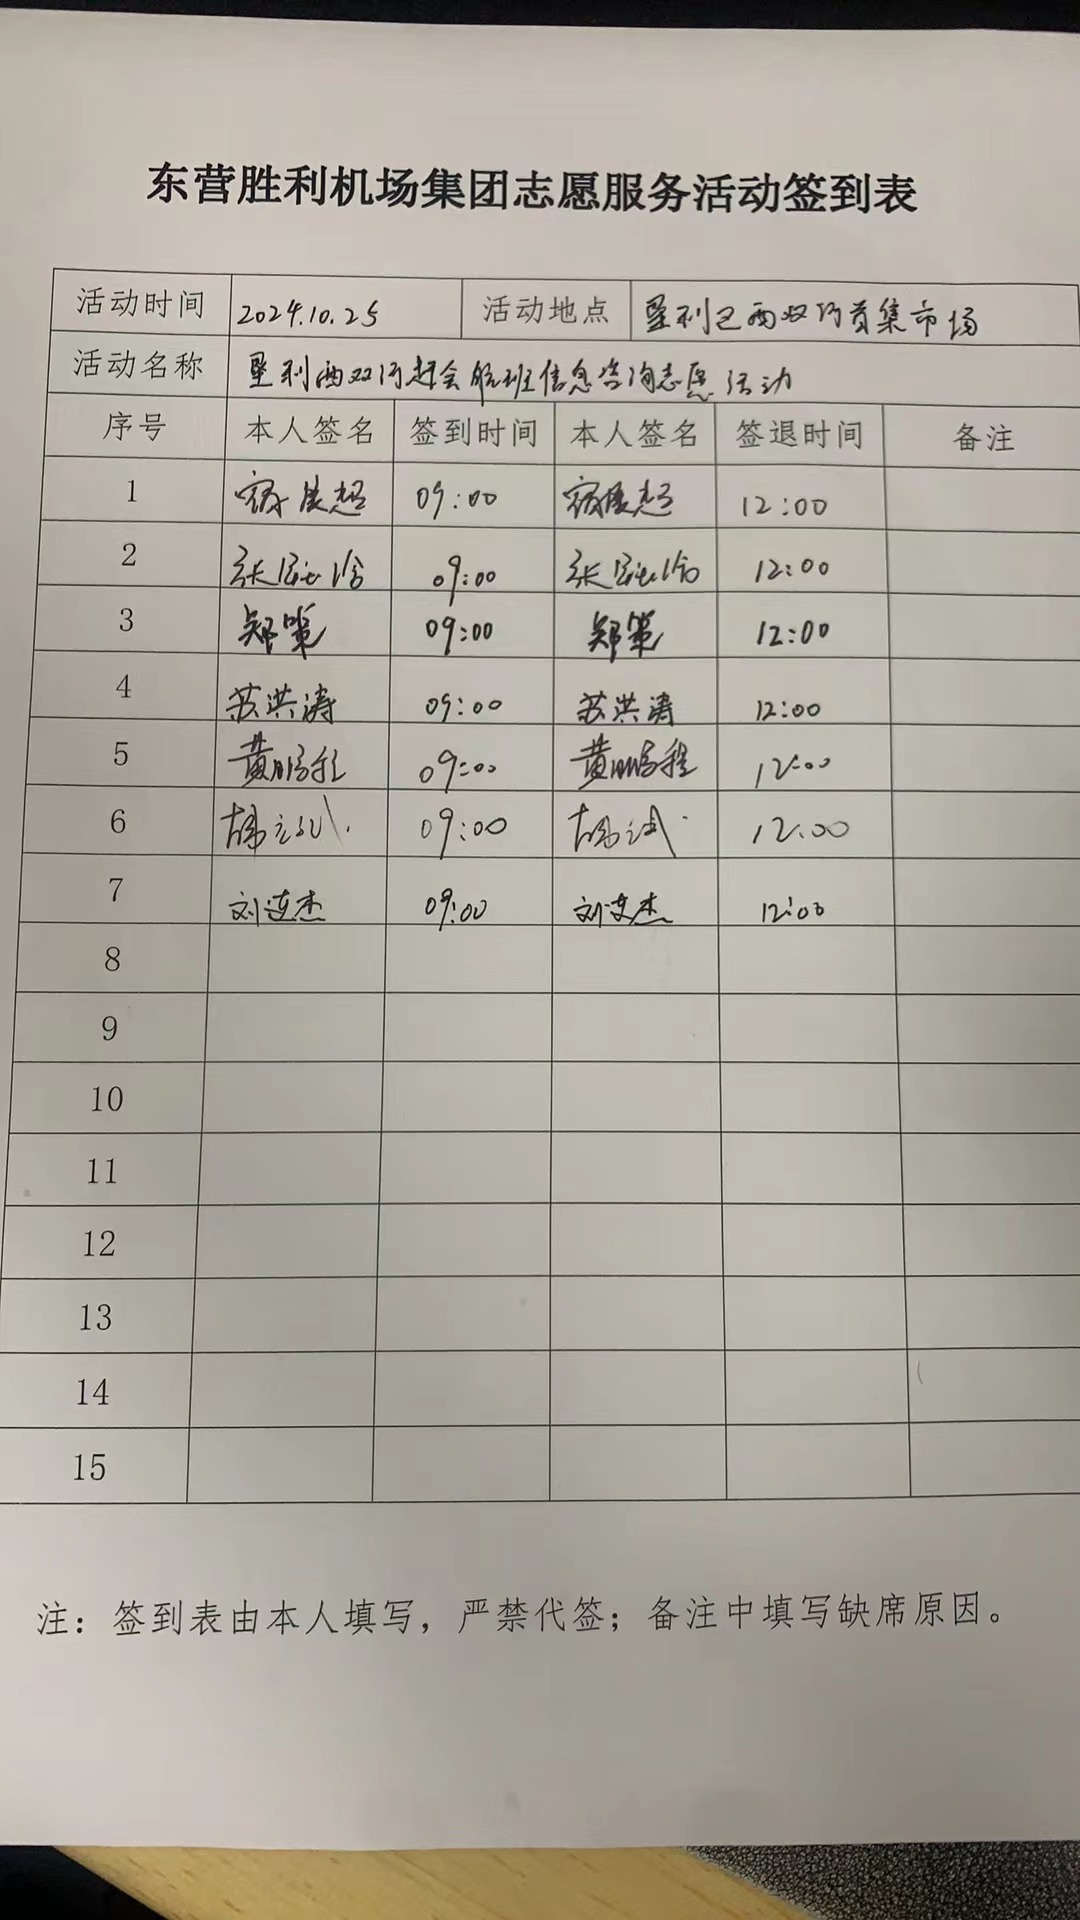 东营胜利机场集团志愿服务活动签到表
活动时间 2024.10.25 活动地点 垦利区西双河育集市场
活动名称 垦利西双河赶会航班信息咨询志愿活动
序号 本人签名 签到时间 本人签名 签退时间 备注
1 09:00 12:00
2 张 09:00 张 12:00
3 郑策 09:00 郑策 12:00
4 苏洪涛 09:00 苏洪涛 12:00
5 黄鹏程 09:00 黄鹏程 12:00
6 09:00 12:00
7 刘连杰 09:00 刘连杰 12:00
8
9
10
11
12
13
14
15
注：签到表由本人填写，严禁代签；备注中填写缺席原因。